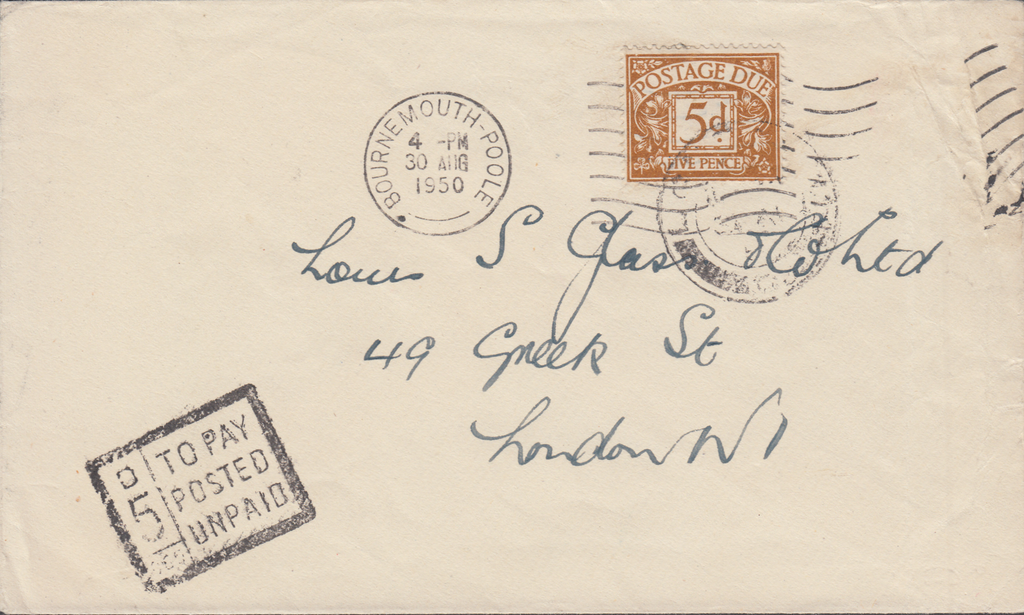 BOURNEMOUTH-POOLE
4 - PM
30 AUG
1950
POSTAGE DUE
5d.
FIVE PENCE
Louis S Glass & Co Ltd
49 Greek St
London W1
D
5
TO PAY
POSTED
UNPAID